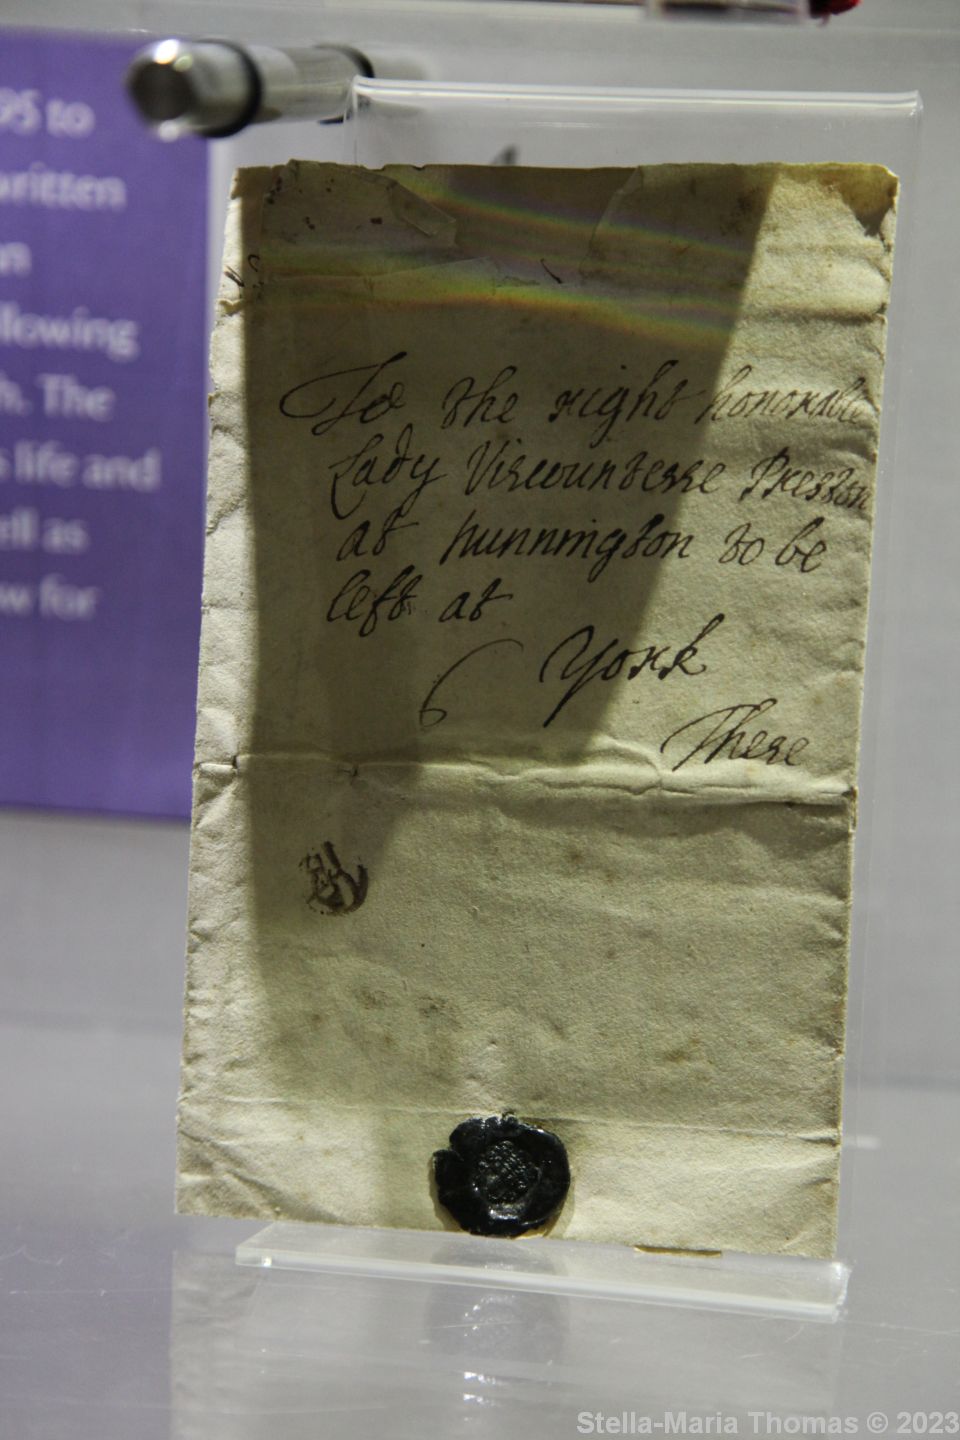 95 to
written
llowing
h. The
s life and
ell as
w for
To the right honorable
Lady Viscountesse Preston
at Nunnington to be
left at
York
There
Stella-Maria Thomas © 2023